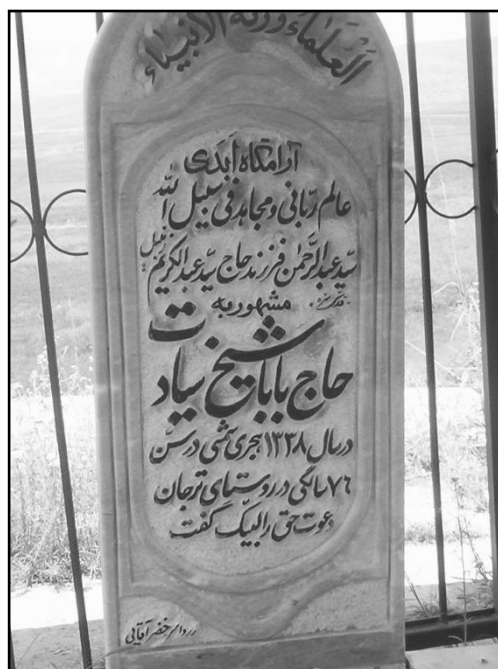 العلماء ورثة الأنبیاء
آرامگاه أبدی
عالم ربّانی و مجاهد فی سبیل الله
سیّد عبدالرّحمن فرزند حاج سیّد عبدالکریم
مشهور به
حاج باباشیخ سیادت
در سال ۱۳۳۸ هجری شمسی در سن
۷٦ سالگی در روستای ترجان
دعوت حق را لبیک گفت
خضر آقایی